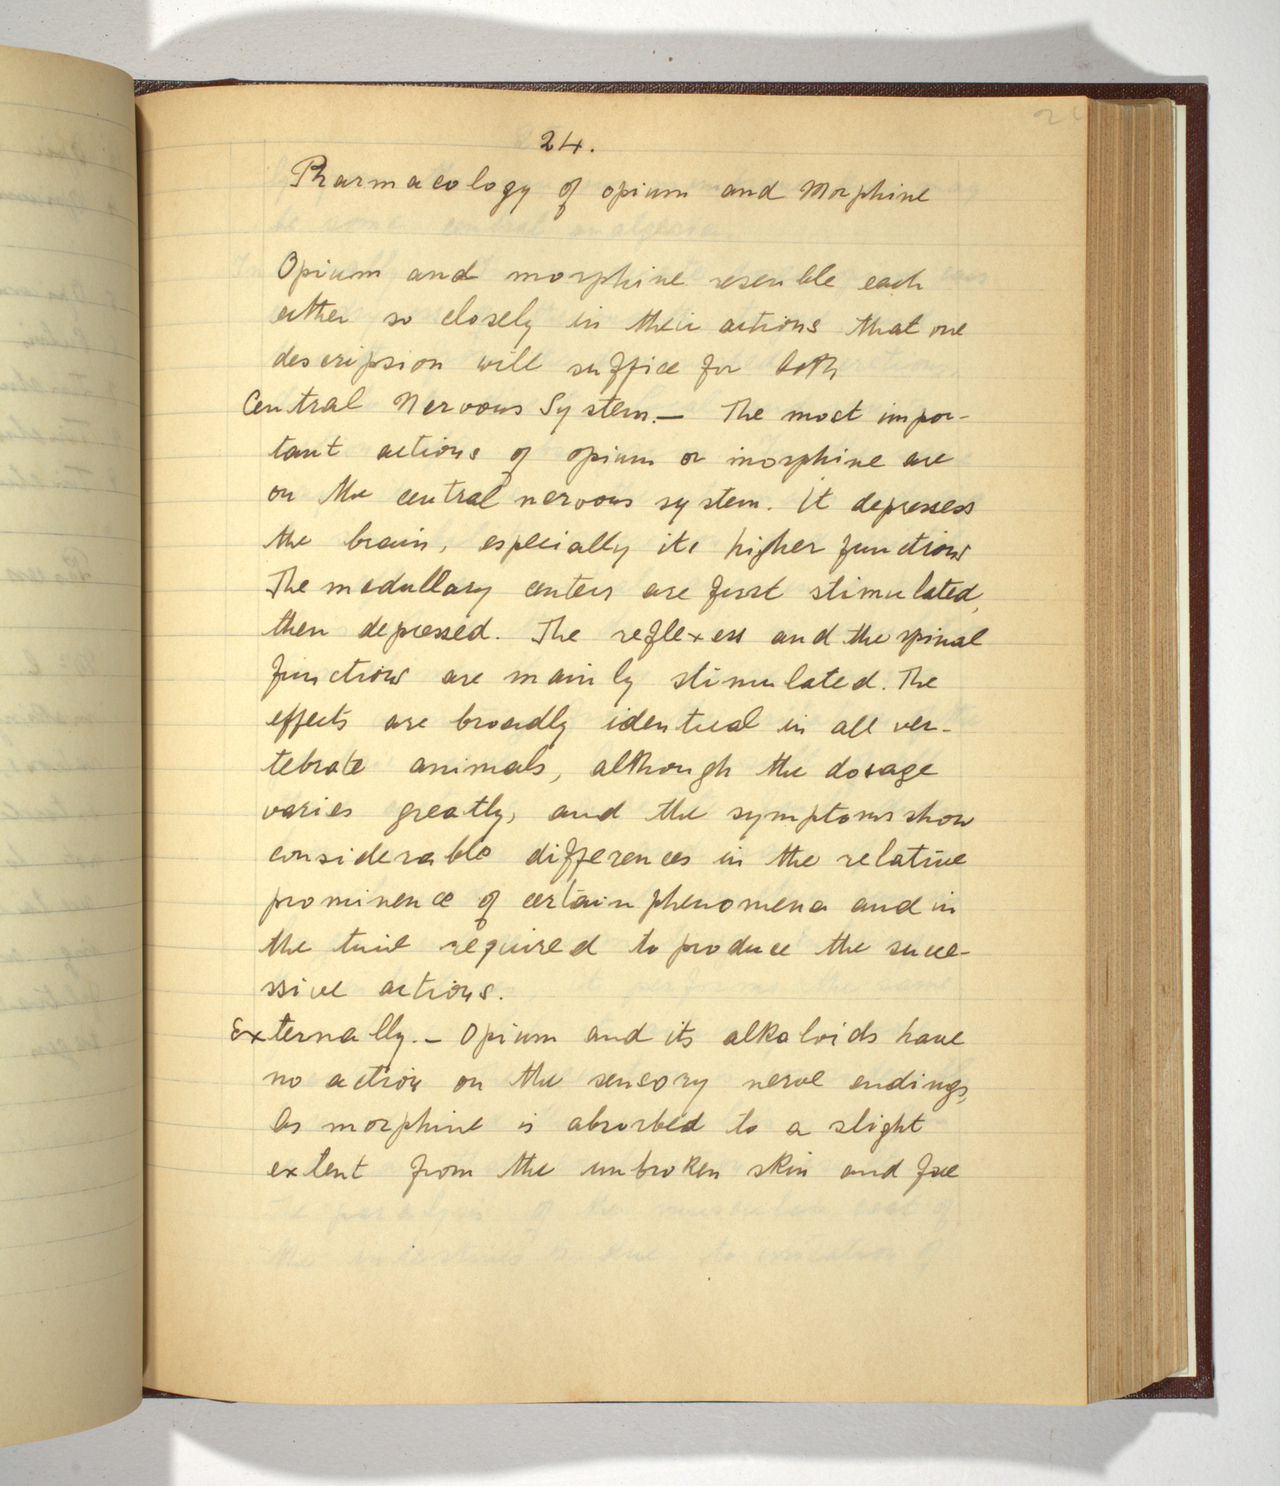 24.
Pharmacology of opium and Morphine
Opium and morphine resemble each
other so closely in their actions that one
descripsion will suffice for both
Central Nervous System.— The most impor-
tant actions of opium or morphine are
on the central nervous system. It depresses
the brain, especially its higher functions
The medullary centers are first stimulated,
then depressed. The reflexess and the spinal
functions are mainly stimulated. The
effects are broadly identical in all ver-
tebrate animals, although the dosage
varies greatly, and the symptoms show
considerable differences in the relative
prominence of certain phenomena and in
the time required to produce the succe-
ssive actions.
Externally.— Opium and its alkaloids have
no action on the sensory nerve endings,
As morphine is absorbed to a slight
extent from the unbroken skin and